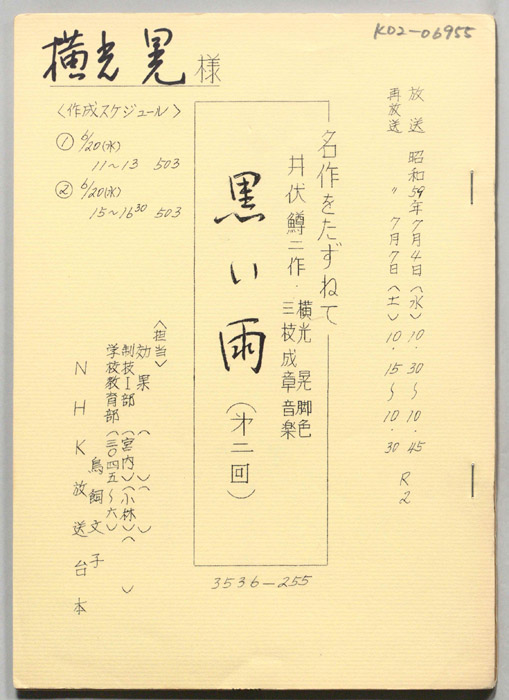 K02-06955
放送 昭和59年7月4日(水)10.30〜10.45 R2
再放送 〃 7月7日(土)10.15〜10.30
名作をたずねて
井伏鱒二作・横光 晃 脚色
三枝成章 音楽
黒い雨(オ二回)
3536-255
横光晃 様
〈作成スケジュール〉
① 6/20(水)
11〜13 503
② 6/20(水)
15〜16³⁰ 503
〈担当〉
効果( )( )
制技Ⅰ部(宮内)(小林)( )
学校教育部(三〇四五〜六)
鳥飼文子
NHK放送台本